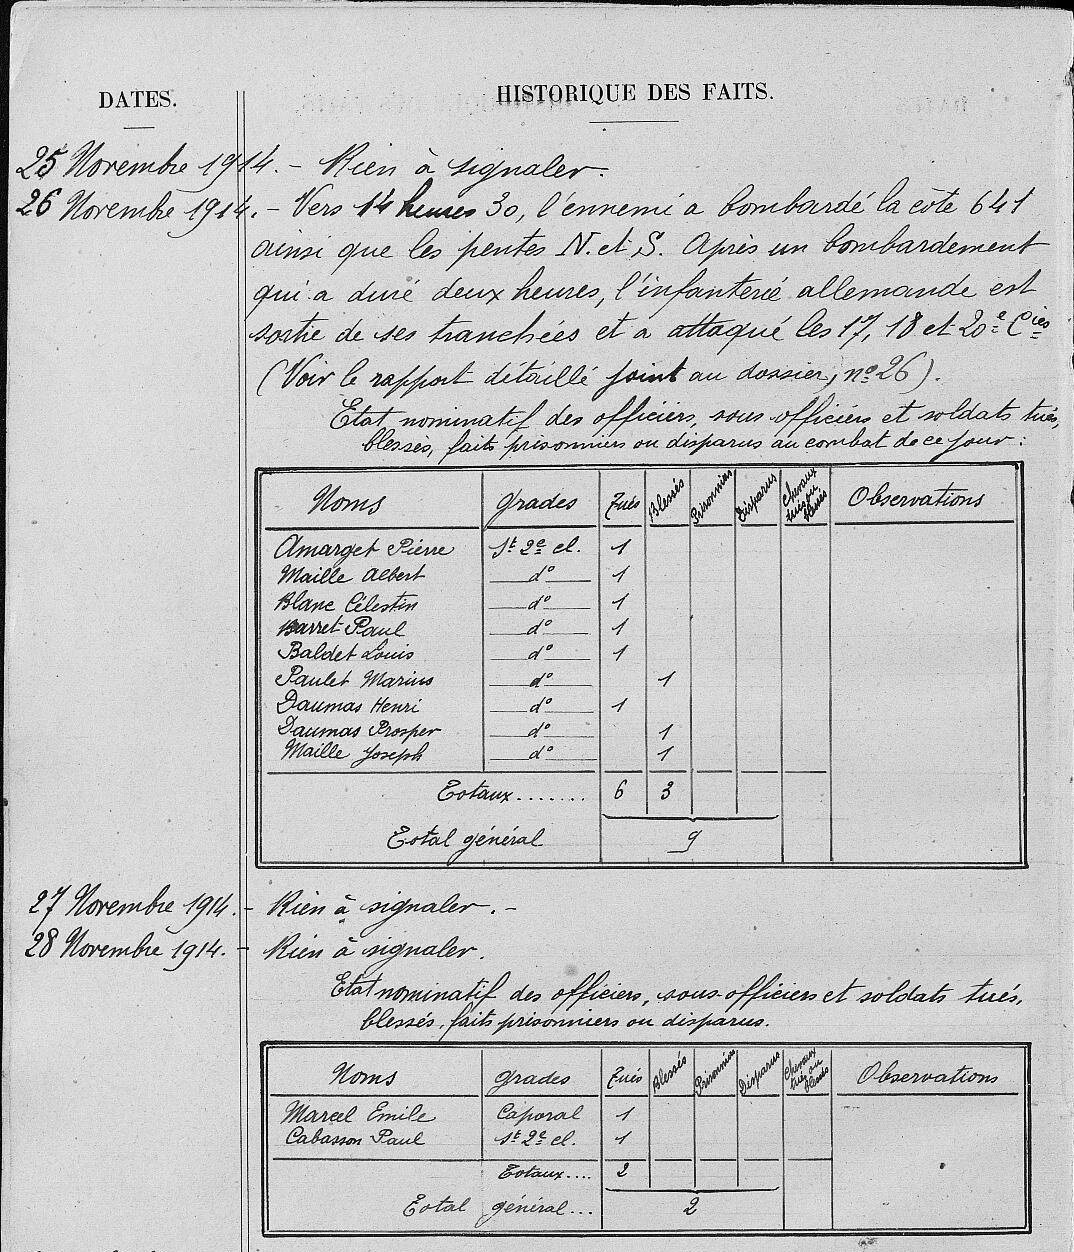 DATES.
HISTORIQUE DES FAITS.
25 Novembre 1914. – Rien à signaler.
26 Novembre 1914. – Vers 14 heures 30, l'ennemi a bombardé la côte 641
ainsi que les pentes N. et S. Après un bombardement
qui a duré deux heures, l'infanterie allemande est
sortie de ses tranchées et a attaqué les 17, 18 et 20e Cies
(Voir le rapport détaillé joint au dossier, no 26).
Etat nominatif des officiers, sous-officiers et soldats tués,
blessés, faits prisonniers ou disparus au combat de ce jour :
Noms Grades Tués Blessés Prisonniers Disparus Chevaux tués ou blessés Observations
Amarget Pierre St 2e cl. 1
Maille Albert do 1
Blanc Célestin do 1
Barret Paul do 1
Baldet Louis do 1
Paulet Marius do 1
Daumas Henri do 1
Daumas Prosper do 1
Maille Joseph do 1
Totaux....... 6 3
Total général 9
27 Novembre 1914. – Rien à signaler. –
28 Novembre 1914. – Rien à signaler.
Etat nominatif des officiers, sous-officiers et soldats tués,
blessés, faits prisonniers ou disparus.
Noms Grades Tués Blessés Prisonniers Disparus Chevaux tués ou blessés Observations
Marcel Emile Caporal 1
Cabasson Paul St 2e cl. 1
Totaux.... 2
Total général... 2